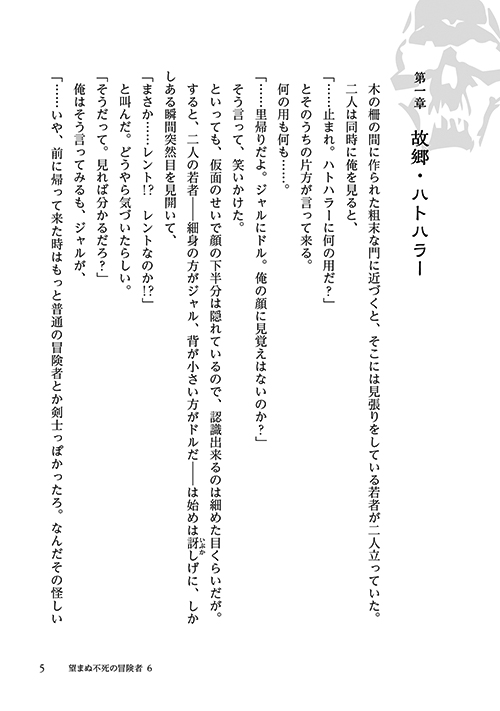 第一章　故郷・ハトハラー
木の柵の間に作られた粗末な門に近づくと、そこには見張りをしている若者が二人立っていた。
二人は同時に俺を見ると、
「……止まれ。ハトハラーに何の用だ？」
とそのうちの片方が言って来る。
何の用も何も……。
「……里帰りだよ。ジャルにドル。俺の顔に見覚えはないのか？」
そう言って、笑いかけた。
といっても、仮面のせいで顔の下半分は隠れているので、認識出来るのは細めた目くらいだが。
すると、二人の若者――細身の方がジャル、背が小さい方がドルだ――は始めは訝しげに、しか
いぶか
しある瞬間突然目を見開いて、
「まさか……レント!?　レントなのか!?」
と叫んだ。どうやら気づいたらしい。
「そうだって。見れば分かるだろ？」
俺はそう言ってみるも、ジャルが、
「……いや、前に帰って来た時はもっと普通の冒険者とか剣士っぽかったろ。なんだその怪しい
5　望まぬ不死の冒険者 6